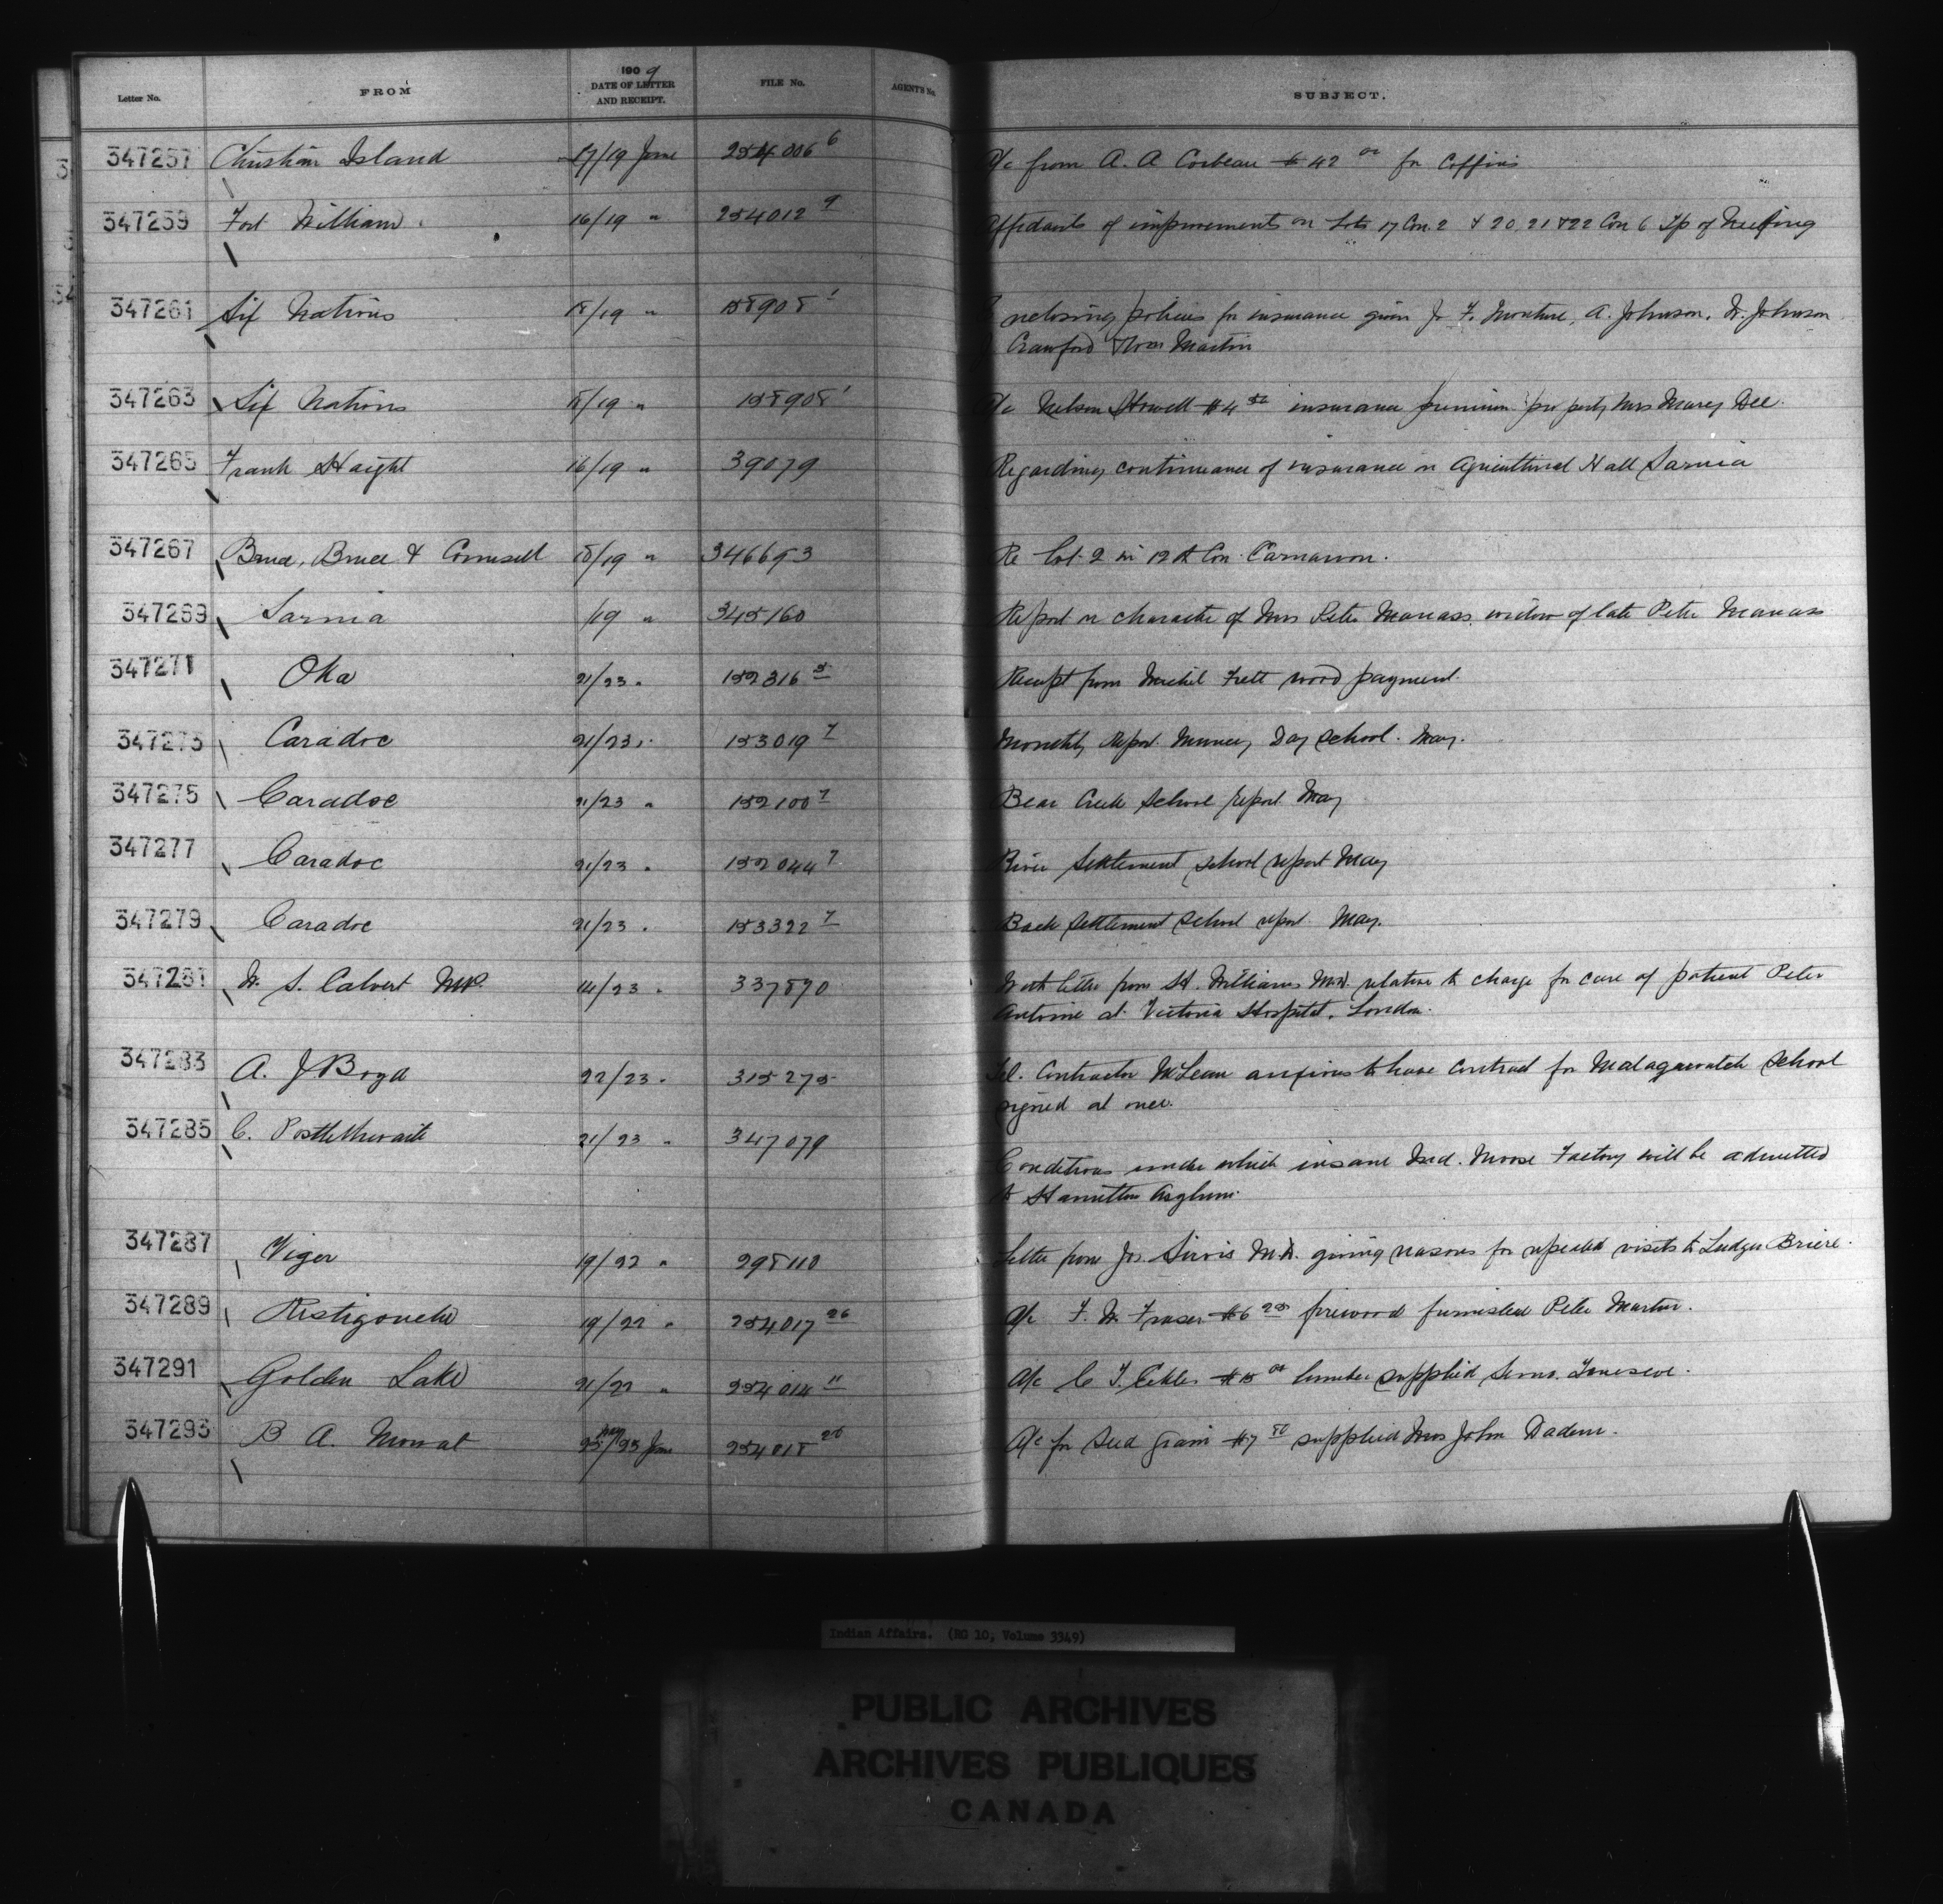 Letter No. FROM 1909 DATE OF LETTER AND RECEIPT. FILE No. AGENT'S No. SUBJECT.
347257 Christian Island 17/19 June 254006 6 A/c from A. A Corbeau $42 00 for Coffins
347259 Fort William 16/19 " 254012 9 Affidavits of improvements on Lots 17 Con. 2 & 20, 21 & 22 Con 6 Tp of Neebing
347261 Six Nations 18/19 " 158908 1 Enclosing policies for insurance given J. F. Monture, A. Johnson, W. Johnson
Crawford Thos Martin
347263 Six Nations 18/19 " 158908 1 A/c Nelson Howell $4 50 insurance premium property Mrs Marey Dee.
347265 Frank Haight 16/19 " 39079 Regarding continuance of insurance on Agricultural Hall Sarnia
347267 Bruce, Bruce & Counsell 18/19 " 346693 Re Lot 2 in 12th Con. Carnarvon.
347269 Sarnia /19 " 345160 Report on character of Mrs Peter Manass, widow of late Peter Manass
347271 Oka 21/23 " 152316 3 Receipt from Michel wood payment.
347273 Caradoc 21/23 " 153019 7 Monthly Report. Muncey Day School. May.
347275 Caradoc 21/23 " 152100 7 Bear Creek School report May
347277 Caradoc 21/23 " 152044 7 River Settlement school report May
347279 Caradoc 21/23 " 153322 7 Back Settlement School report May.
347281 W. S. Calvert MP. 14/23 " 337890 With letter from H. Williams M.D. relative to charge for care of patient Peter
Antoine at Victoria Hospital, London.
347283 A. J Boyd 22/23 " 315275 Tel. Contractor McLean anxious to have Contract for Malagawatch School
signed at once.
347285 C. Postlethwaite 21/23 " 347079
Conditions under which insane Ind. Moose Factory will be admitted
to Hamilton Asylum.
347287 Viger 19/22 " 298110 Letter from Jos. Sirois M.D. giving reasons for repeated visits to Ludger Briere.
347289 Ristigouche 19/22 " 254017 26 A/c F. W. Fraser $6 25 firewood furnished Peter Martin.
347291 Golden Lake 21/22 " 254014 11 A/c C. F. lumber supplied
347293 B A. Mowat 25 May/23 June 254018 20 A/c for Seed grain $7 50 supplied Mrs John
Indian Affairs. (RG 10, Volume 3349)
PUBLIC ARCHIVES
ARCHIVES PUBLIQUES
CANADA